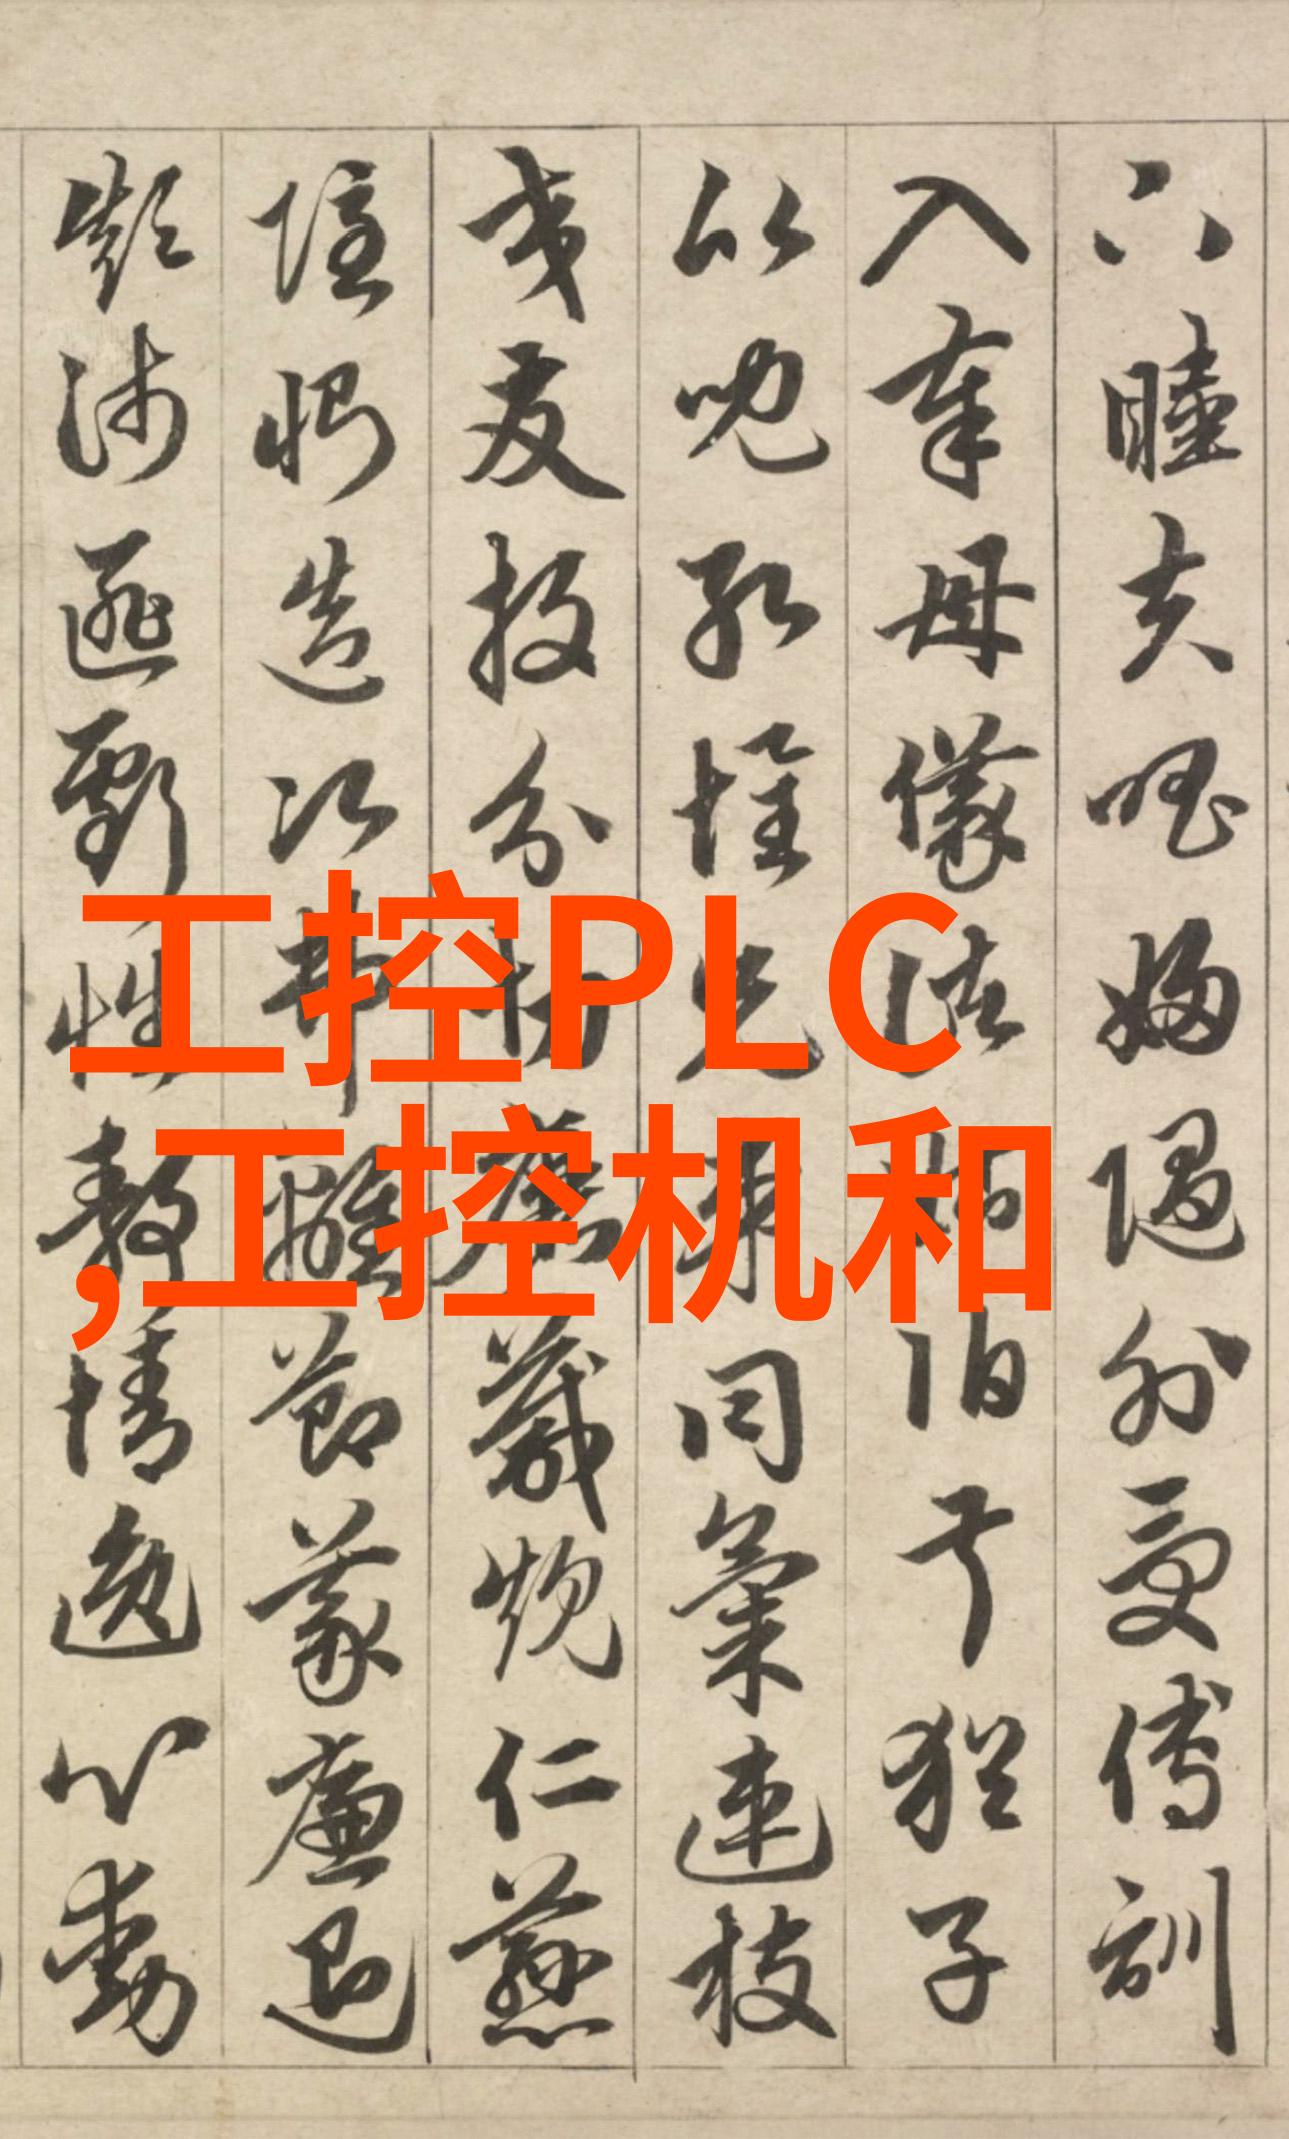 下睦夫唱婦隨外受傅訓
入奉母儀諸姑伯叔猶子
比兒孔懷兄弟同氣連枝
交友投分切磨箴規仁慈
隱惻造次弗離節義廉退
顛沛匪虧性靜情逸心動
工控PLC
,工控机和